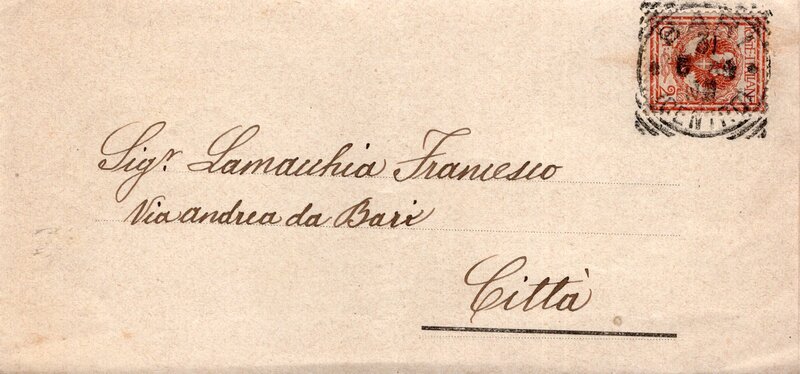 BARI
31
CENTRO
POSTE ITALIANE
Sigr. Lamacchia Francesco
Via andrea da Bari
Città